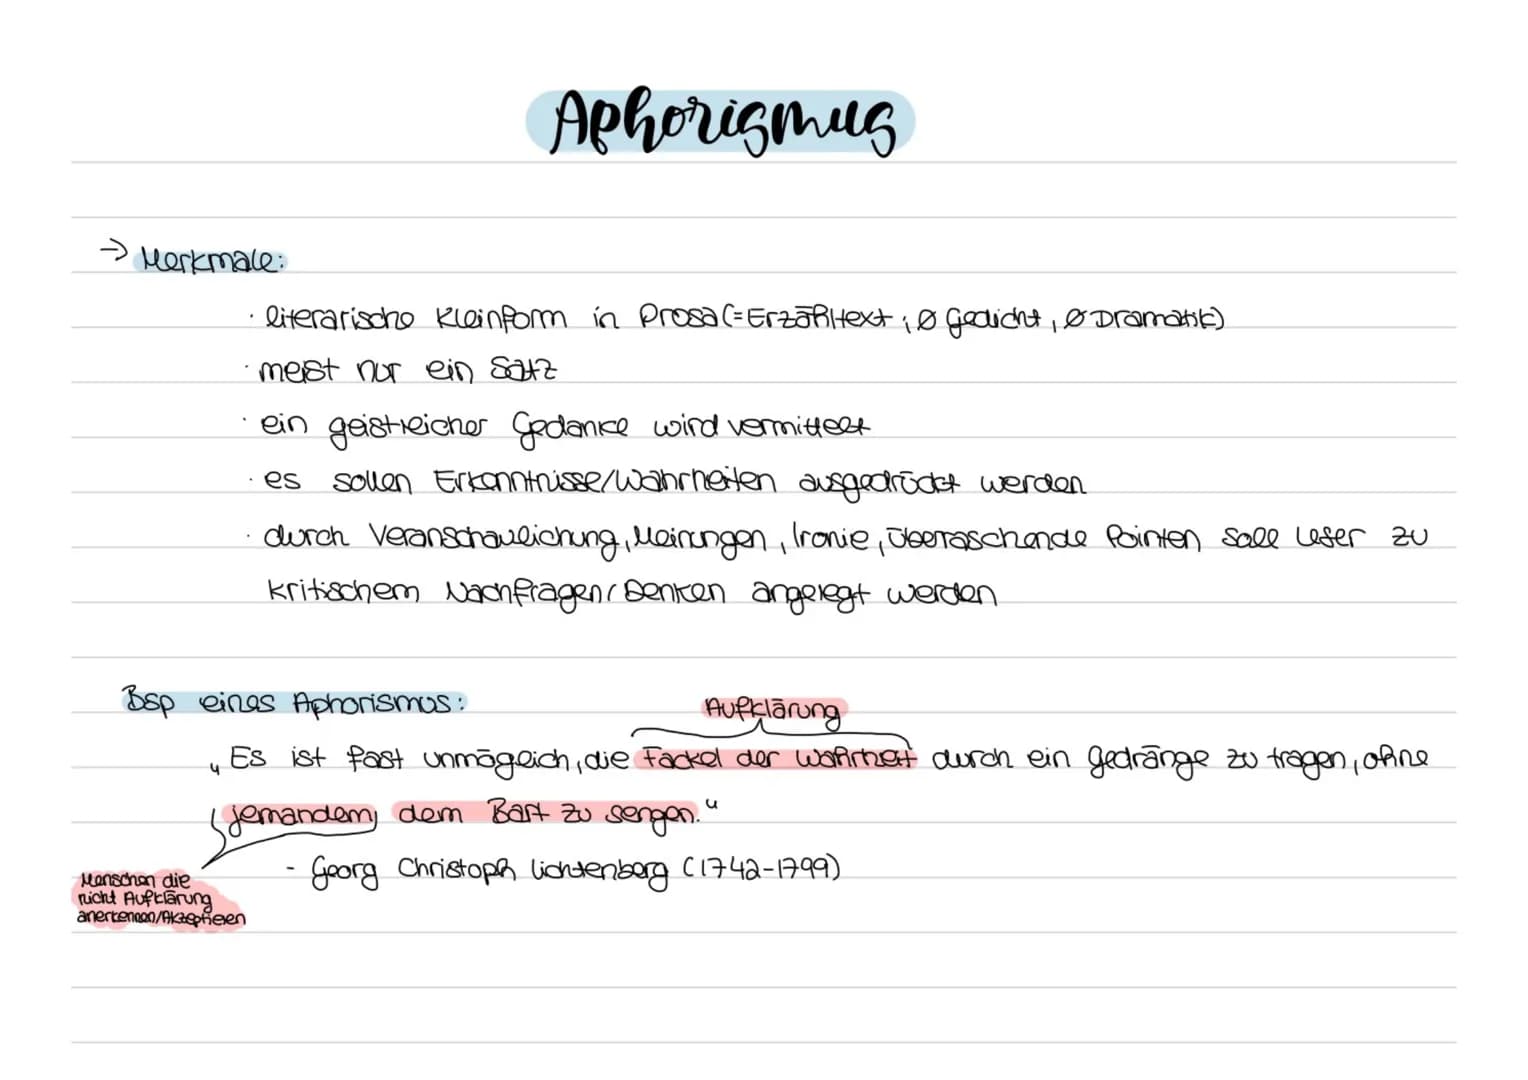 Aphorismus
→ Merkmale:
· literarische Kleinform in Prosa (=Erzähltext; ø Gedicht, ø Dramatik)
· meist nur ein Satz
· ein geistreicher Gedanke wird vermittelt
· es sollen Erkenntnisse/Wahrheiten ausgedrückt werden
· durch Veranschaulichung, Meinungen, Ironie, überraschende Pointen soll Leser zu
kritischem Nachfragen/Denken angeregt werden
Bsp eines Aphorismus:
Aufklärung
„Es ist fast unmöglich, die Fackel der Wahrheit durch ein Gedränge zu tragen, ohne
jemandem dem Bart zu sengen.“
- Georg Christoph Lichtenberg (1742-1799)
Menschen die
nicht Aufklärung
anerkennen/Akzeptieren